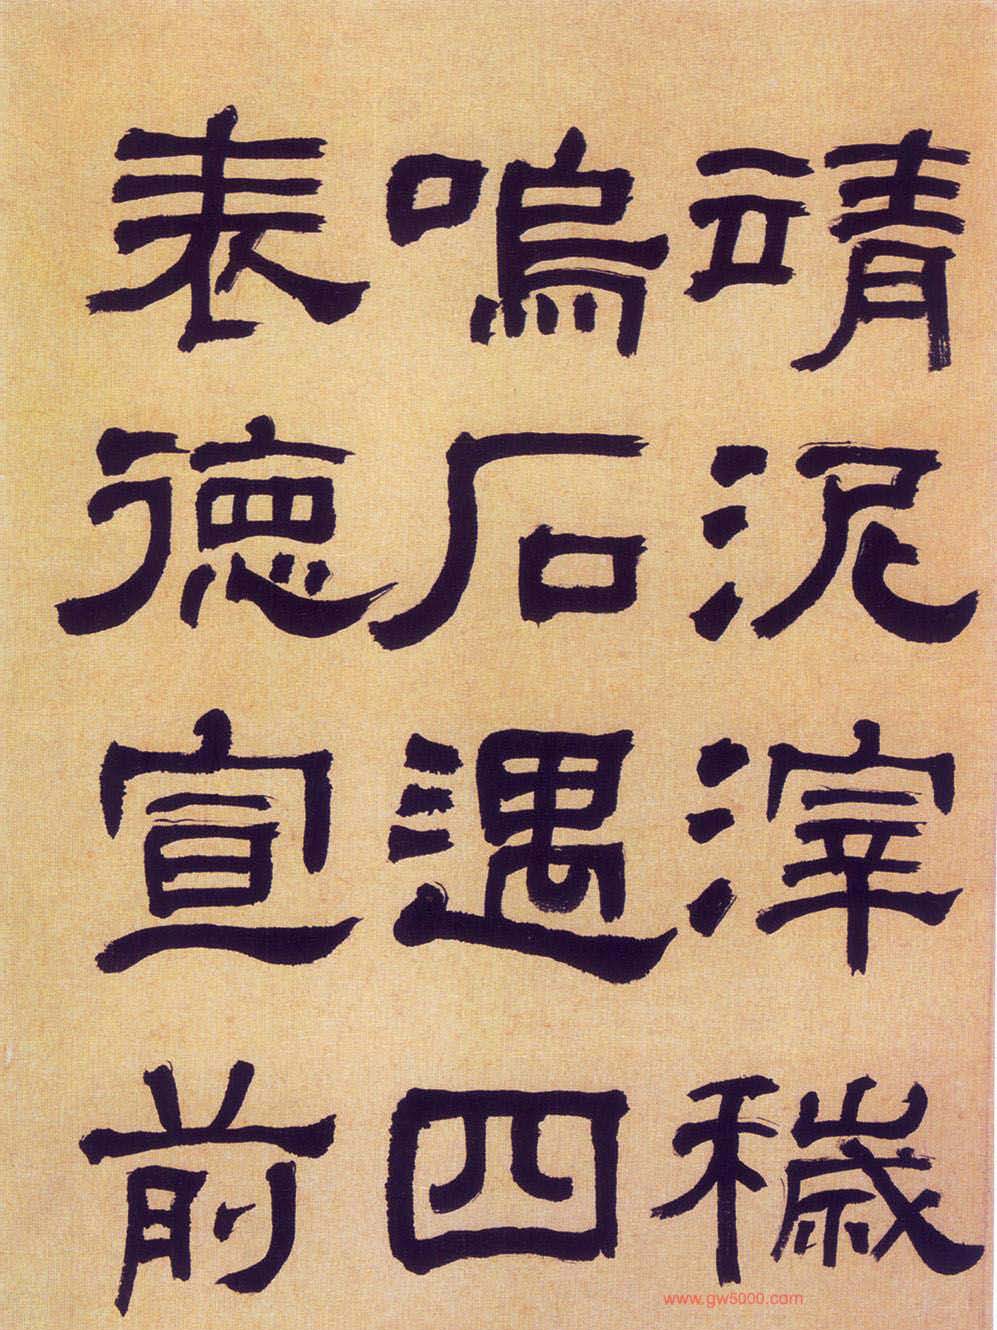 靖泥滓穢
嗚石遇四
表德宣前
www.gw5000.com